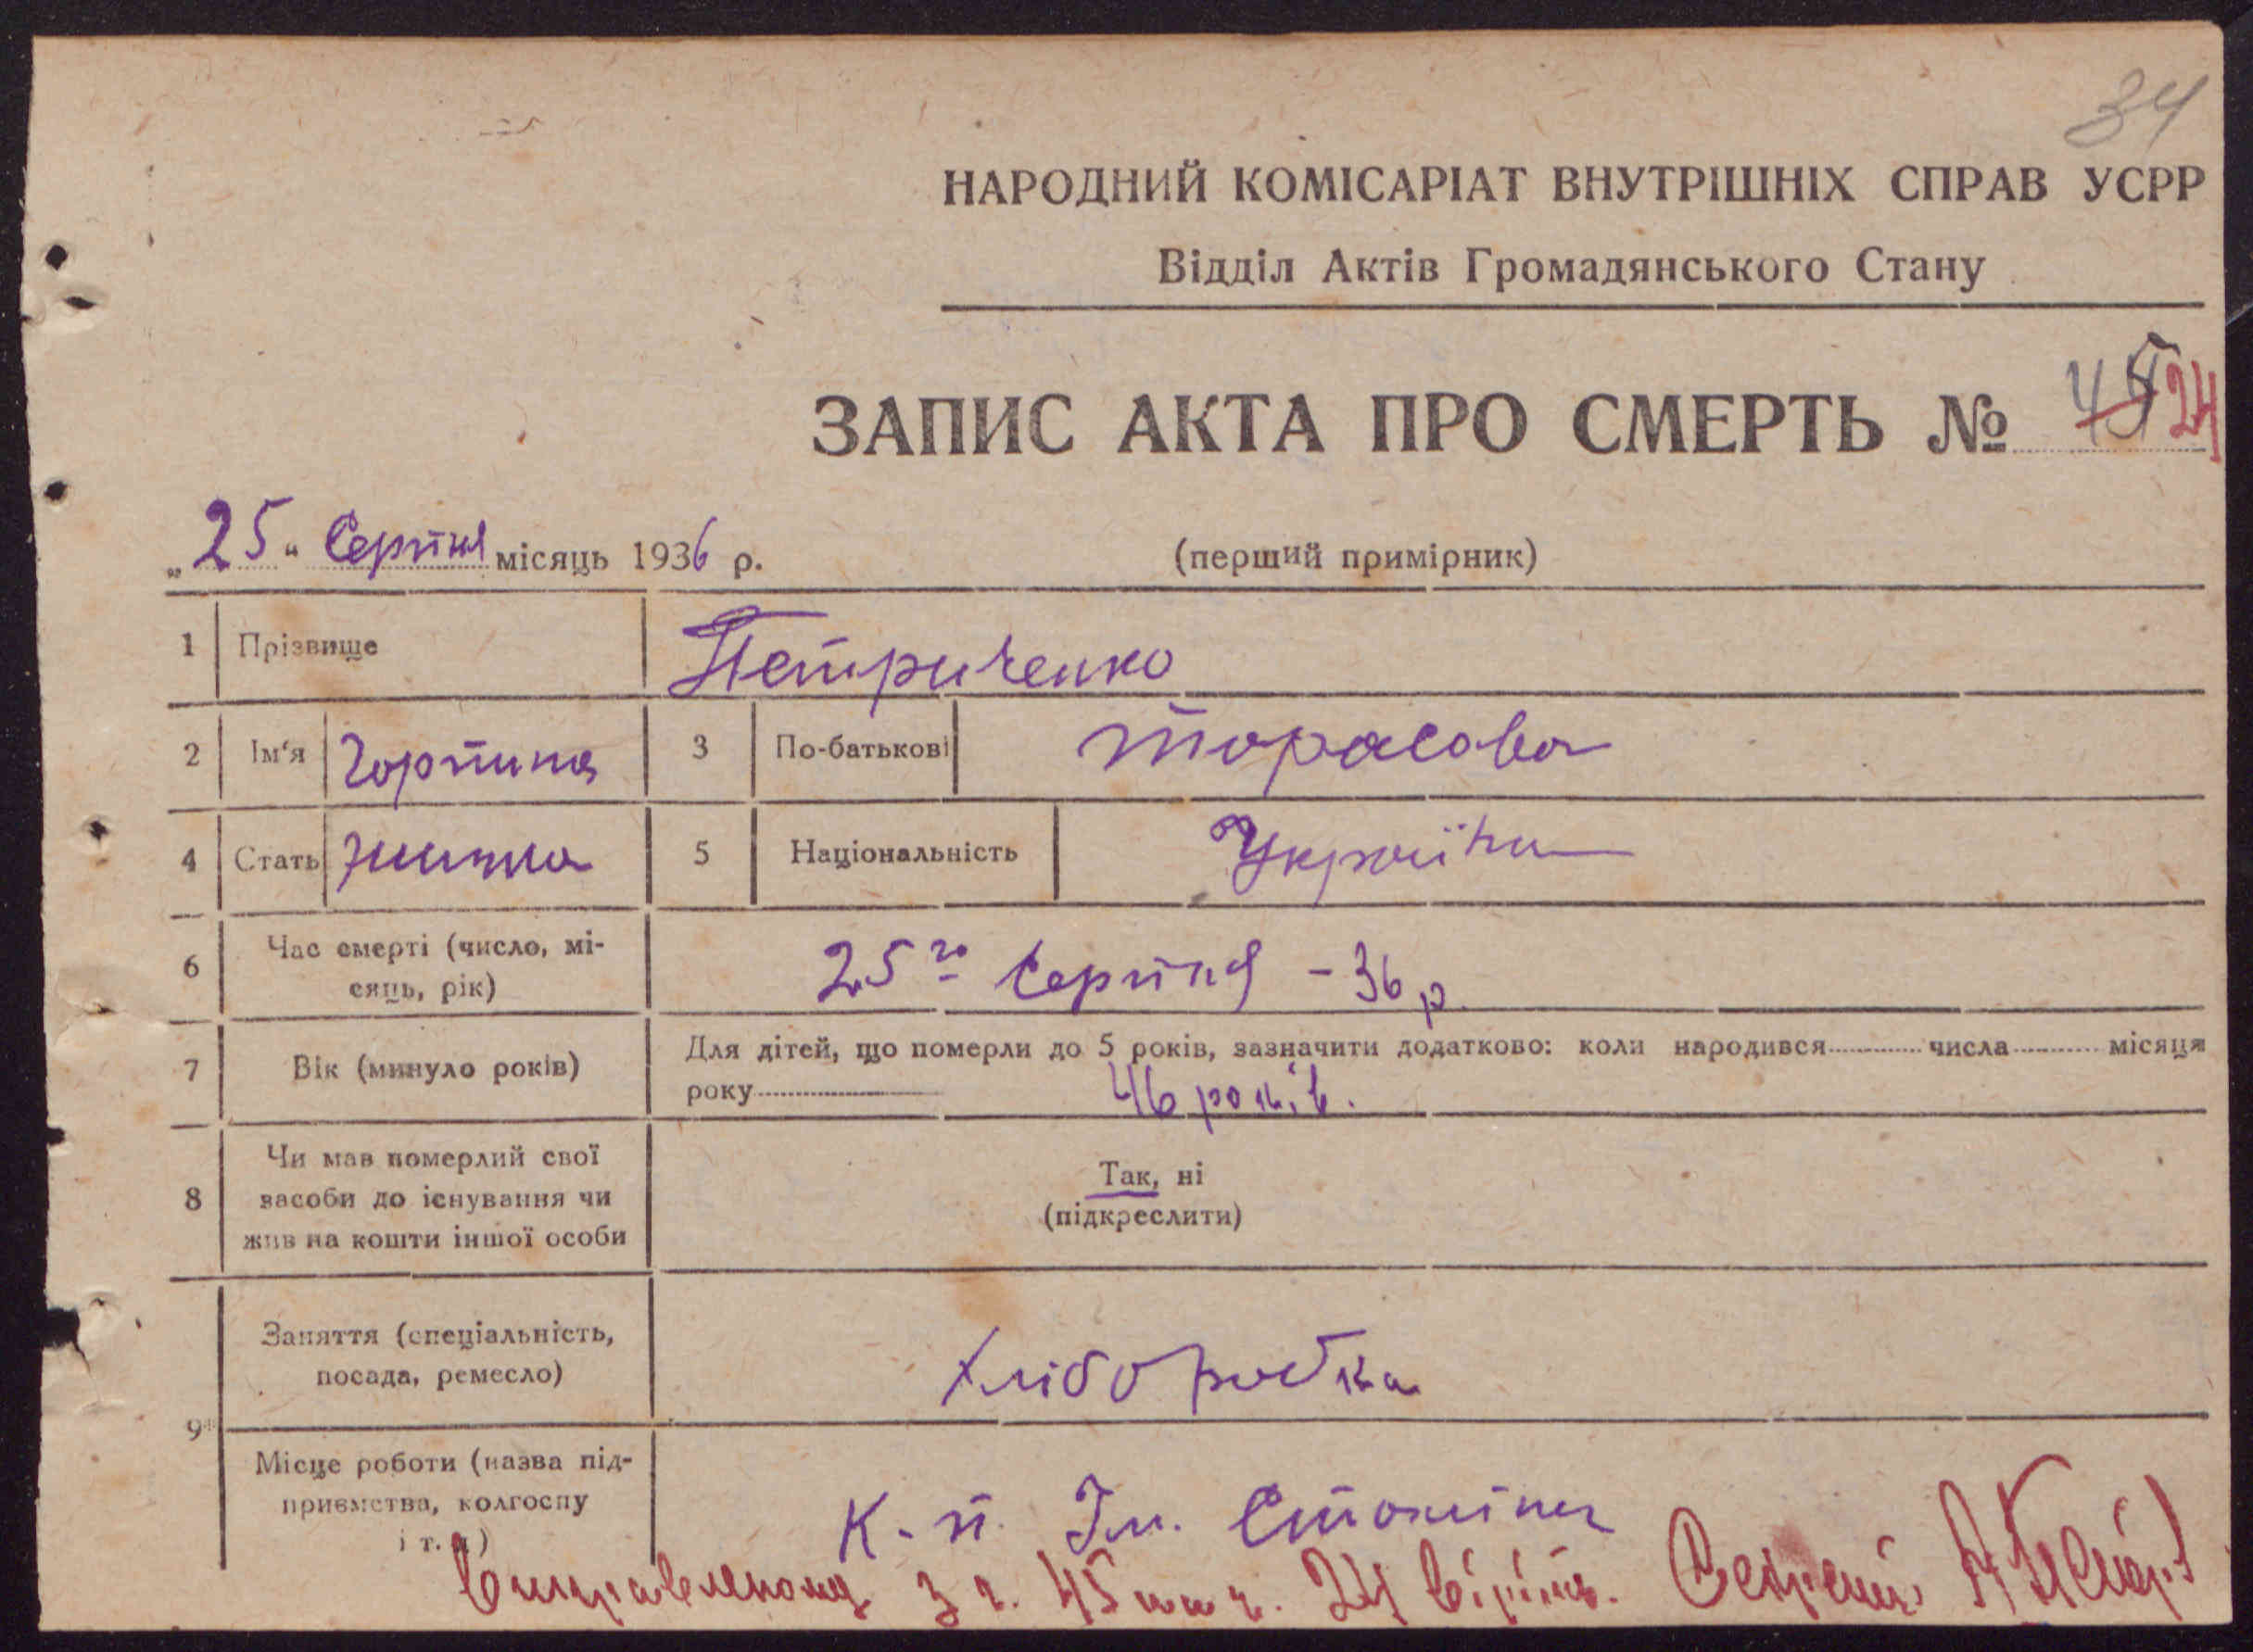 34
НАРОДНИЙ КОМІСАРІАТ ВНУТРІШНІХ СПРАВ УСРР
Відділ Актів Громадянського Стану
ЗАПИС АКТА ПРО СМЕРТЬ № 45 24
„25" Серпня місяць 1936 р. (перший примірник)
1 Прізвище Петриченко
2 Ім'я Горпина 3 По-батькові Торасова
4 Стать жинка 5 Національність Україн
6 Час смерті (число, мі-
сяць, рік) 25го Серпня - 36 р
7 Вік (минуло років) Для дітей, що померли до 5 років, зазначити додатково: коли народився числа місяця
року 46 років.
8 Чи мав померлий свої
засоби до існування чи
жив на кошти іншої особи
Так, ні
(підкреслити)
9 Заняття (спеціальність,
посада, ремесло) хліборобка
Місце роботи (назва під-
приємства, колгоспу
і т. д) К-п. Ім. Сталіна
Виправленому з ч. 45 на ч. 24 вірить.